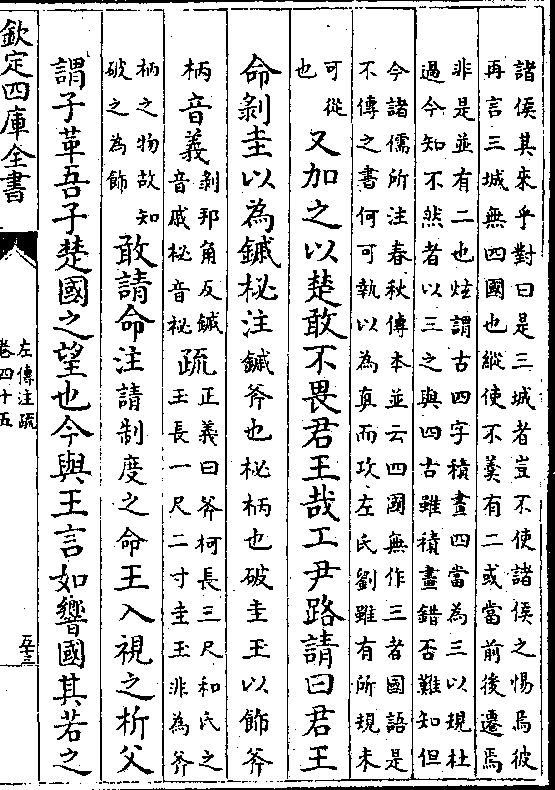 諸侯其來乎對曰是三城者豈不使諸侯之惕焉彼
再言三城無四國也縱使不羹有二或當前後遷焉
非是並有二也炫謂古四字積畫四當為三以規杜
過今知不然者以三之與四古雖積畫錯否難知但
今諸儒所注春秋傳本並云四國無作三者國語是
不傳之書何可執以為真而攻左氏劉雖有所規未
可從
也
又加之以楚敢不畏君王哉工尹路請曰君王
命剝圭以為鏚柲注鏚斧也柲柄也破圭玉以飾斧
柄音義剝邦角反鏚
音戚柲音秘
疏正義曰斧柯長三尺和氏之
玉長一尺二寸圭玉非為斧
柄之物故知
破之為飾
敢請命注請制度之命王入視之析父
謂子革吾子楚國之望也今與王言如響國其若之
欽定四庫全書
左傳注疏
卷四十五